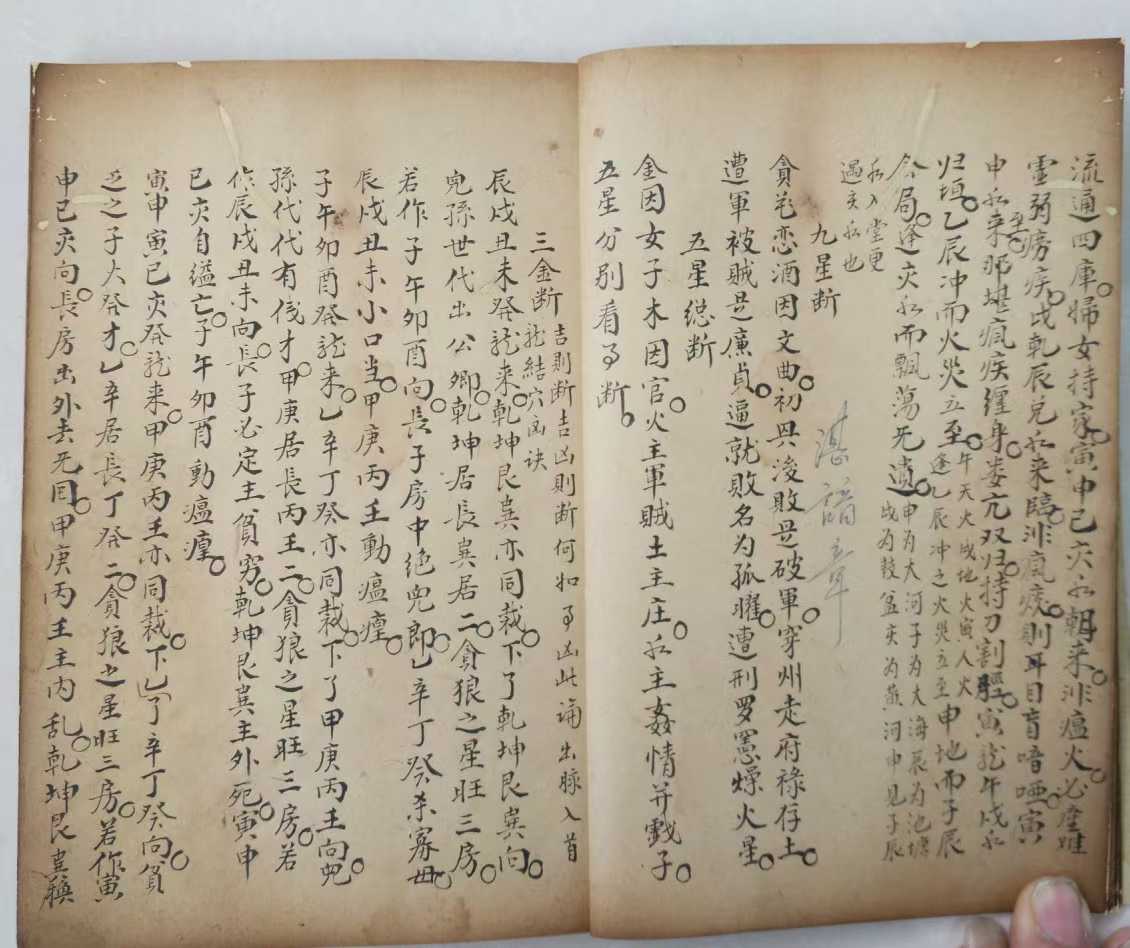 流通四庫婦女持家寅申已亥水朝来非瘟火必
霊弱痨疾戌乾辰兑水来臨非瘋痰則耳目盲喑哑寅
申水来那堪瘋疾纏身娄亢双归持刀割寅龙午戌水
至
归垣乙辰冲而火災立至午天火戌地火寅人火逢乙辰冲之火災立至申地而子辰
合局逢亥水而飄荡无遗申为大河子为大海辰为池塘戌为鼓盆亥为黄河申见子辰
水入堂更
遇亥水也
九星断
貪花恋酒因文曲初興後敗是破軍穿州走府禄存土
遭軍被賊是廉貞逼就敗名为孤曜遭刑罗憲燥火星
五星縂断
金因女子木因官火主軍賊土主庄水主姦情并戱子
五星分别看了断
三金断吉則断吉凶則断何如了凶此诵出脉入首
龙結穴凶诀
辰戌丑未癸龙来乾坤艮巽亦同裁下了乾坤艮巽向
兒孫世代出公卿乾坤居長巽居二貪狼之星旺三房
若作子午卯酉向長子房中绝兒郎乙辛丁癸杀寡毌
辰戌丑未小口当甲庚丙壬動瘟瘽
子午卯酉癸龙来乙辛丁癸亦同裁下了甲庚丙壬向兒
孫代代有伐才甲庚居長丙壬二貪狼之星旺三房若
作辰戌丑未向長子必定主貧穷乾坤艮巽主外死寅申
已亥自缢亡子午卯酉動瘟瘽
寅申寅已亥癸龙来甲庚丙壬亦同裁下乙了辛丁癸向貧
乏之子大癸才乙辛居長丁癸二貪狼之星旺三房若作寅
申已亥向長房出外去无囬甲庚丙壬主内乱乾坤艮巽